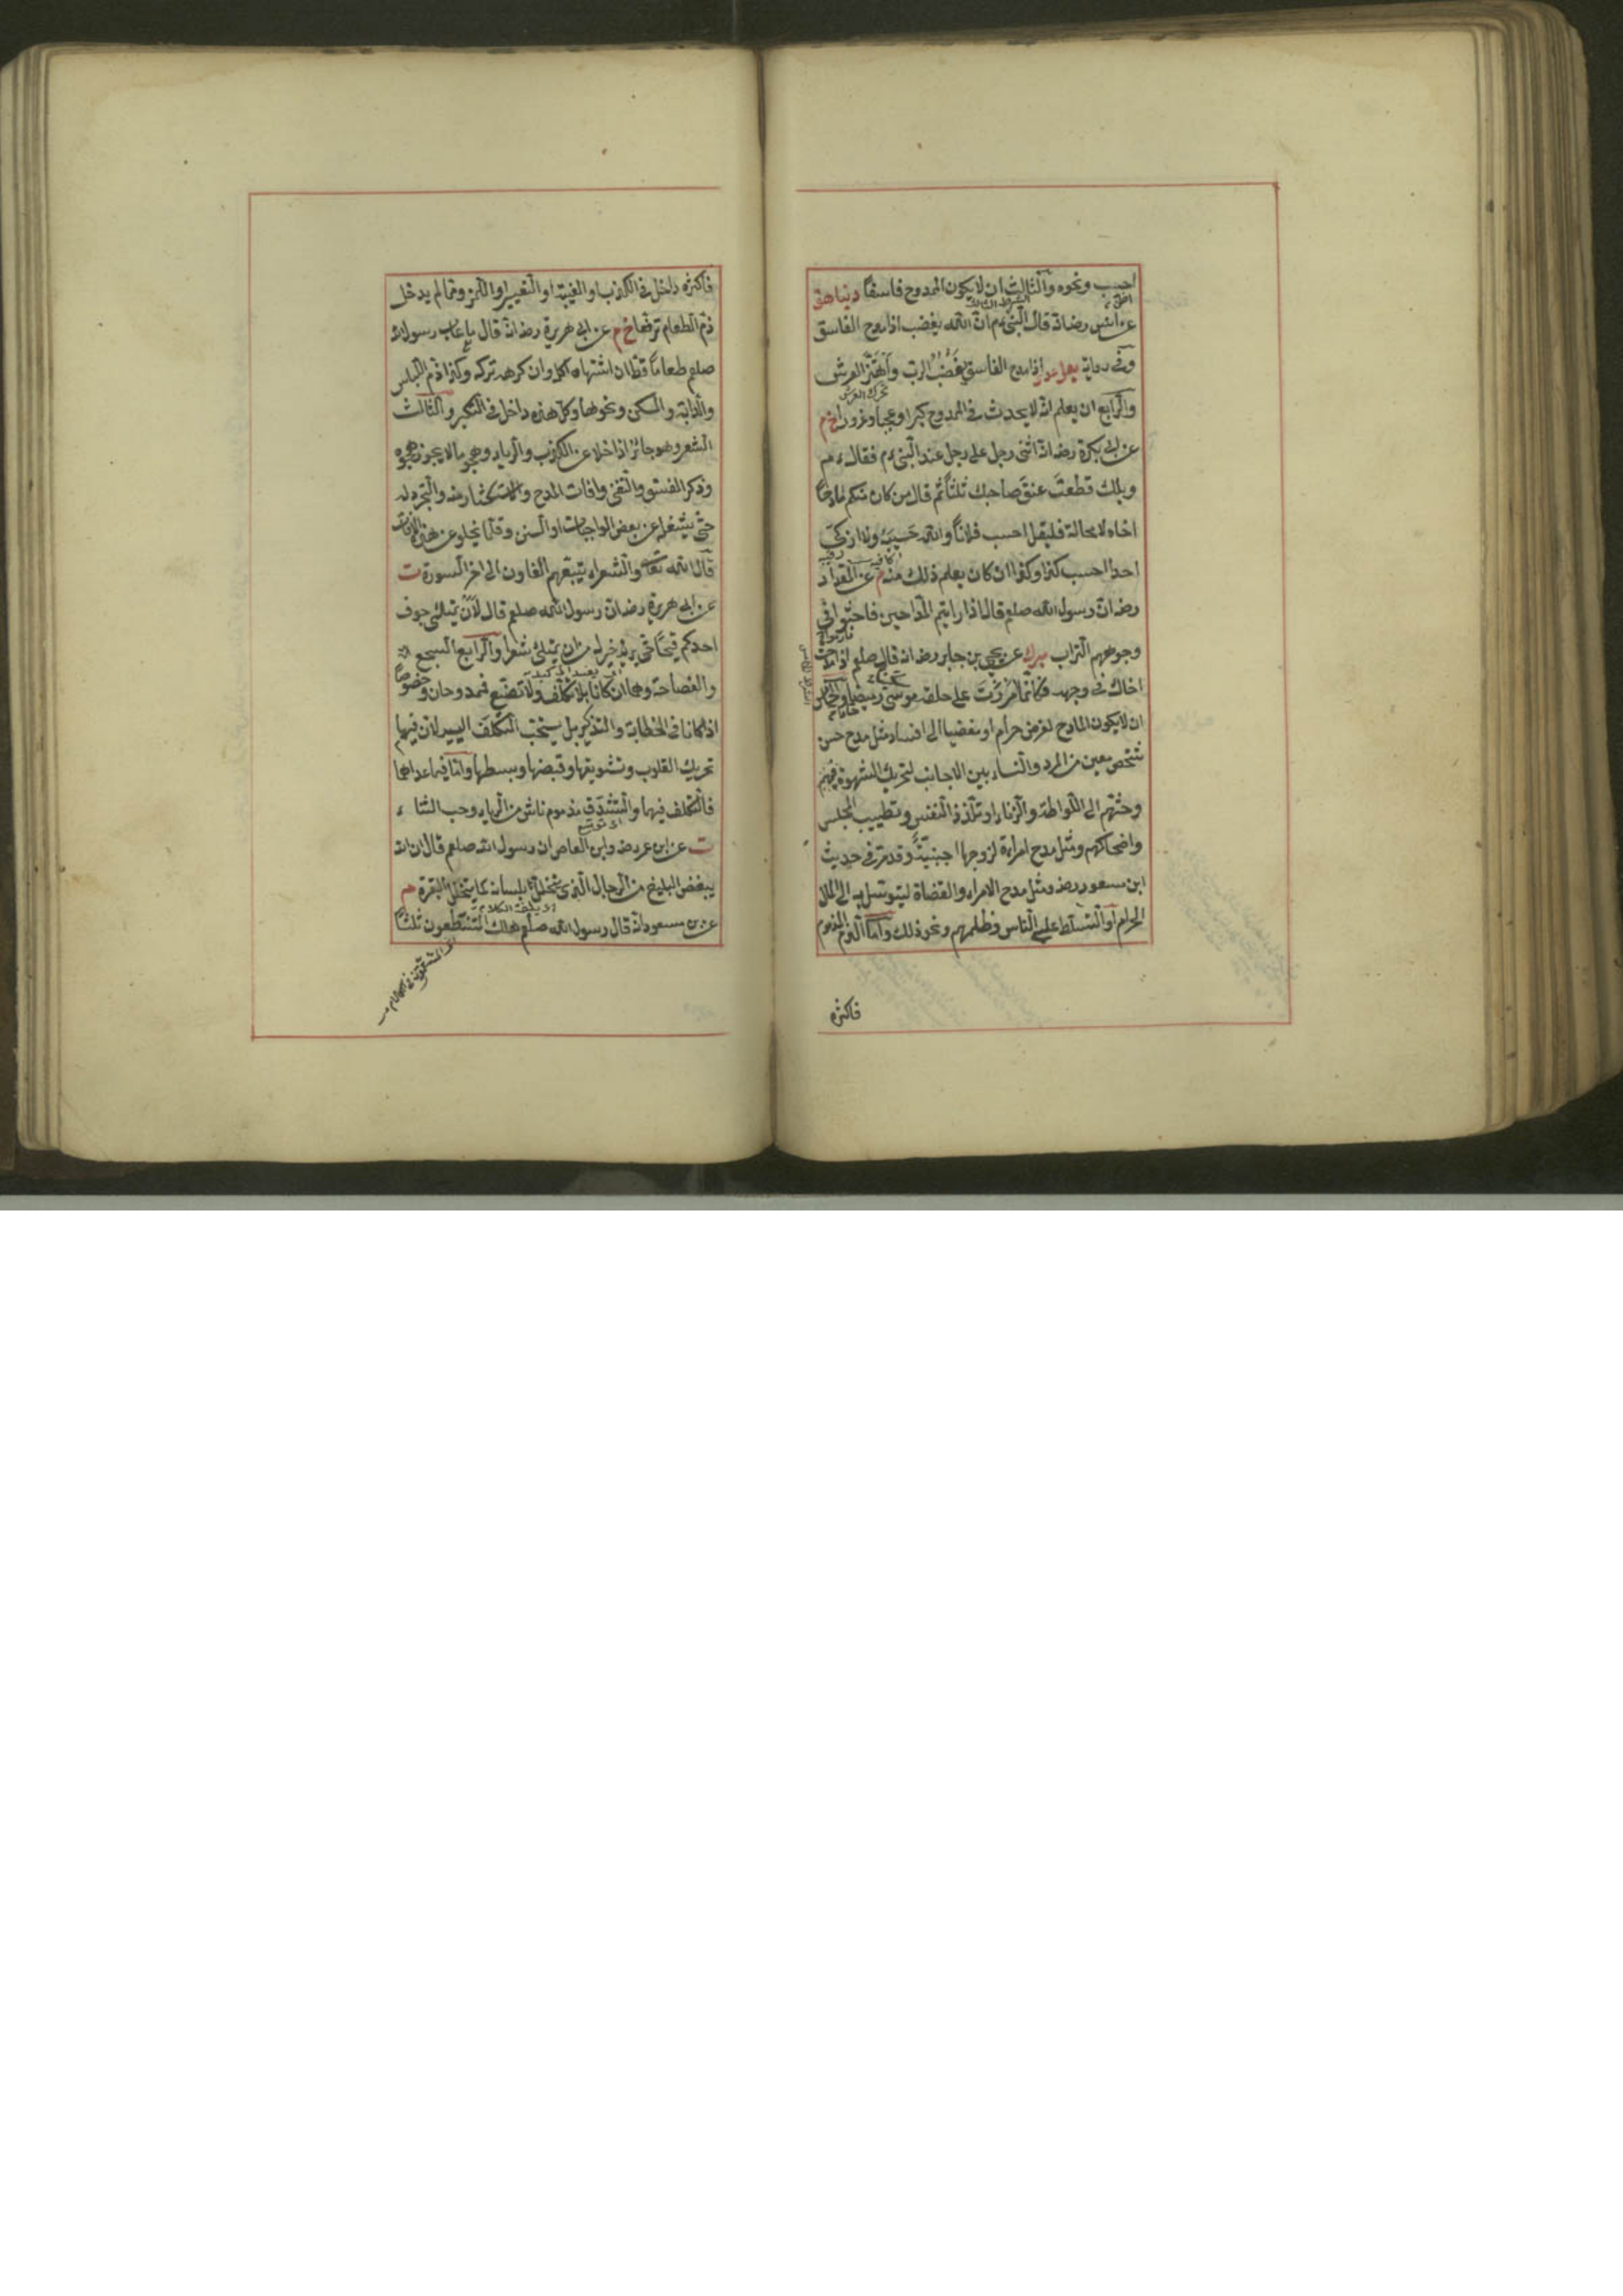 احسب ونحوه والثالث ان لا يكون الممدوح فاسقا دنيا هق
عن انس رضانه قال النبىءم ان الله يغضب اذا مدح الفاسق
وفى رواية يعلى عدى اذا مدح الفاسق يغضب الرب واهتز العرش
تحرك العرش
والرابع ان يعلم انه لا يحدث فى الممدوح كبرا وعجبا وغرورا خ م
عن ابى بكرة رضانه اثنى رجل على رجل عند النبىءم فقالءم
ويلك قطعت عنق صاحبك ثلثا ثم قال من كان منكم مادحا
اخاه لا محالة فليقل احسب فلانا والله حسيبه ولا ازكى
احدا احسب كذا وكذا ان كان يعلم ذلك منه م عن المقداد
رضان رسول الله صلعم قال اذا رايتم المداحين فاحثوا فى
وجوههم التراب مبرك عن يحيى بن جابر رضانه قال صلعم اذا مدحت
اخاك فى وجهه فكانما امررت على حلقه موسى رميضا والخامس
ان لا يكون المادح لغرض حرام او مفضيا الى افساد مثل مدح حسن
شخص معين من المرد والنساء بين الاجانب لتحريك الشهوة فيهم
وحثهم الى اللواطة والزنا او تلذذ النفس وتطييب المجلس
واضحاكهم ومثل مدح امراءة لزوجها اجنبية وقد مر فى حديث
ابن مسعود رضه ومثل مدح الامراء والقضاة ليتوسل به الى المال
الحرام او التسلط على الناس وظلمهم ونحو ذلك واما الذم المذموم
فاكثره
فاكثره داخل فى الكذب او الغيبة او التعيير او اللمز ومما لم يدخل
ذم الطعام ترفعا خ م عن ابى هريرة رضانه قال ما عاب رسول الله
صلعم طعاما قط ان اشتهاه اكله وان كرهه تركه وكذا ذم اللباس
والدابة والمسكن ونحوها وكل هذه داخل فى التكبر والثالث
الشعر وهو جائز اذا خلا عن الكذب والرياء وهجو ما لا يجوز هجوه
وذكر الفسق والتغنى وافات المدح والاستكثار منه والتجرد له
حتى يشغله عن بعض الواجبات او السنن وقلما يخلو عن هذه الافات
قال الله تعا والشعراء يتبعهم الغاون الى اخر السورة ت
عن ابى هريرة رضان رسول الله صلعم قال لان يمتلئ جوف
احدكم قيحا حتى يريه خير له من ان يمتلئ شعرا والرابع السجع
والفصاحة وهما ان كانا بلا تكلف ولا تصنع فممدوحان وخصوصا
اذا كانا فى الخطابة والتذكير بل يستحب التكلف اليسير لان فيهما
تحريك القلوب وتشويقها وقبضها وبسطها واما فيما عداها
فالتكلف فيها والتشدق مذموم ناش من الرياء وحب الثناء
ت عن ابن عمر رضه وابن العاص ان رسول الله صلعم قال ان الله
يبغض البليغ من الرجال الذى يتخلل بلسانه كما يتخلل البقرة م
عن بن مسعود انه قال رسول الله صلعم هلك المتنطعون ثلثا